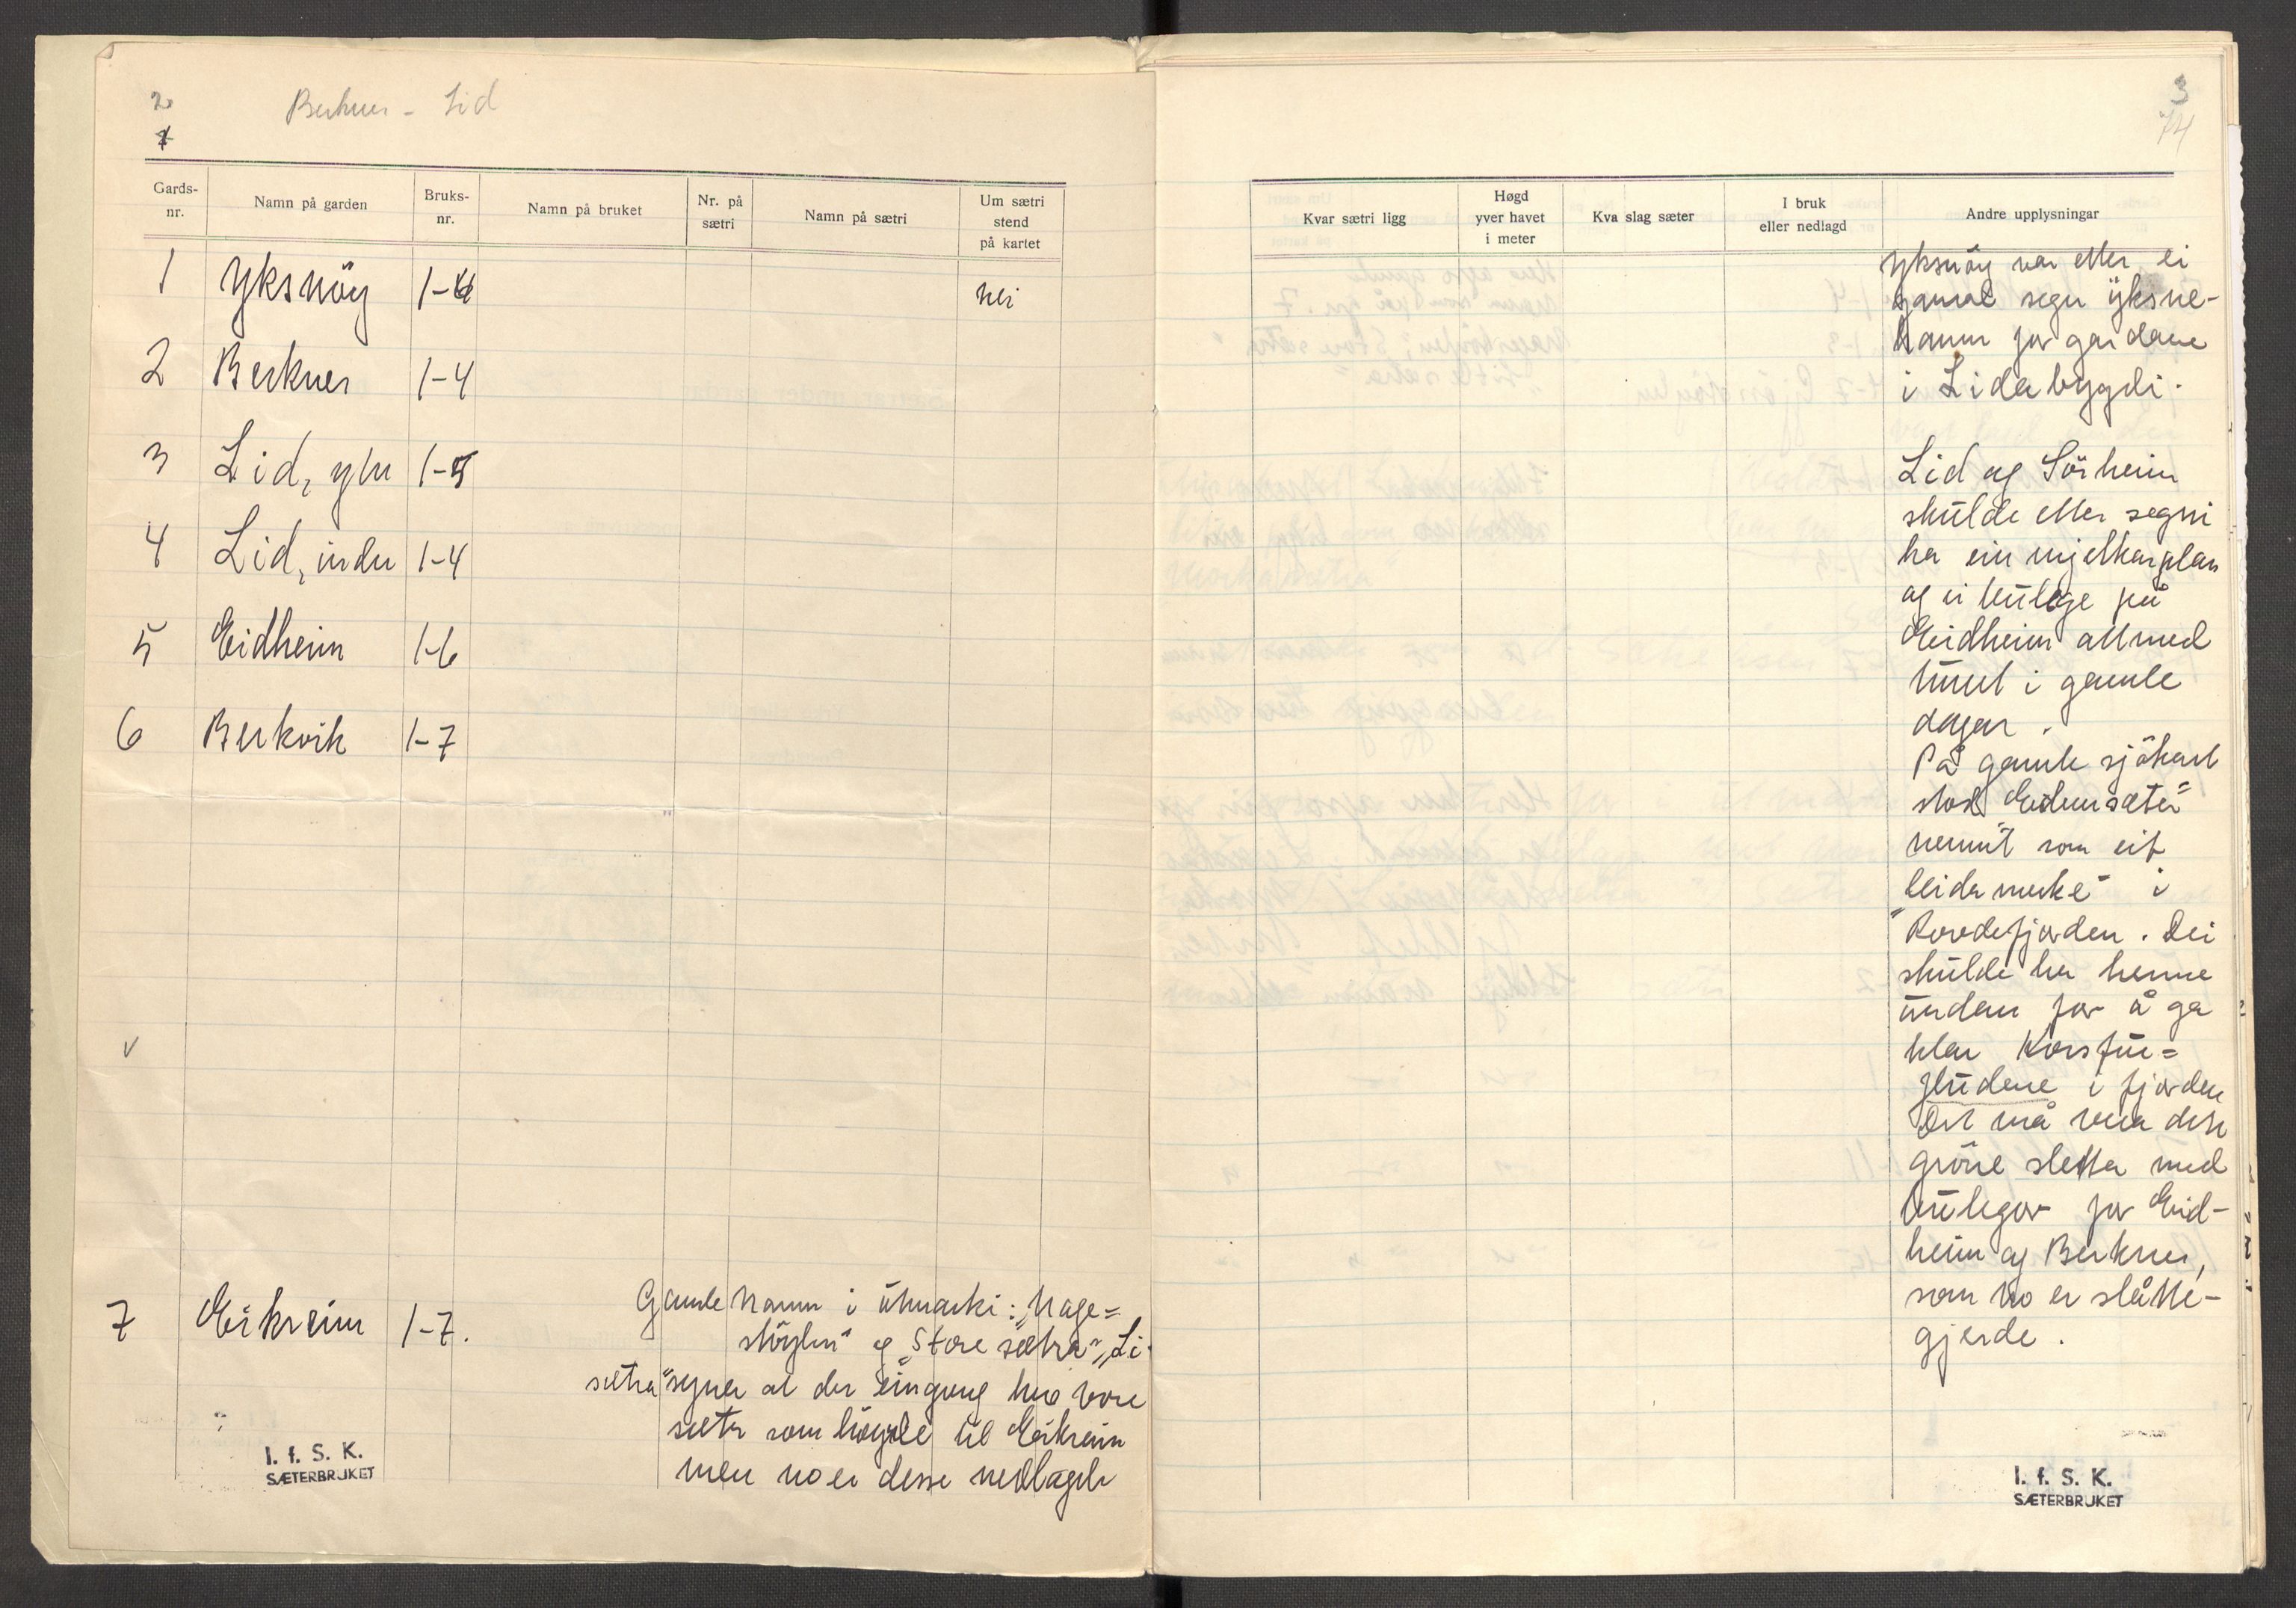 2
Berknes - Lid
1
Gards-nr. Namn på garden Bruks-nr. Namn på bruket Nr. på sætri Namn på sætri Um sætri stend på kartet
1 Yksnöy 1-4 nei
2 Berknes 1-4
3 Lid, ytre 1-5
4 Lid, indre 1-4
5 Eidheim 1-6
6 Berkvik 1-7
7 Eikreim 1-7.
Gamle Namn i útmarki: „Hage=
stöylen" og „Store sætra" „Li
sætra" syner at der eingong her vore
sæter som höyrde til Eikreim
men no er desse nedlagde
I. f. S. K.
SÆTERBRUKET
3
74
Kvar sætri ligg Høgd yver havet i meter Kva slag sæter I bruk eller nedlagd Andre upplysningar
Yksnöy var etter ei
gamal segn yksne-
hamn for gardane
i Lidabygdi.
Lid og Sörheim
skulde etter segni
ha ein mjelkarplan
og ei búlege på
Eidheim attmed
túnet i gamle
dagar.
På gamle sjökart
stod „Eidemsæter"
nemnt som eit
leidemerke i
Rovdefjorden. Dei
skulde ha henne
úndan for å ga
klar Korsfúr=
flúdene i fjorden
Det må vera den
gröne sletta med
búlegor for Eid-
heim og Berknes,
som no er slåtte-
gjerde.
I. f. S. K.
SÆTERBRUKET